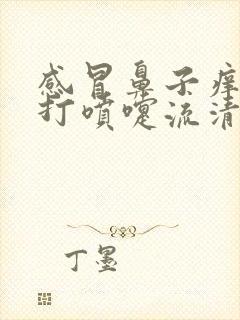 感冒鼻子痒
打喷嚏流清
丁墨